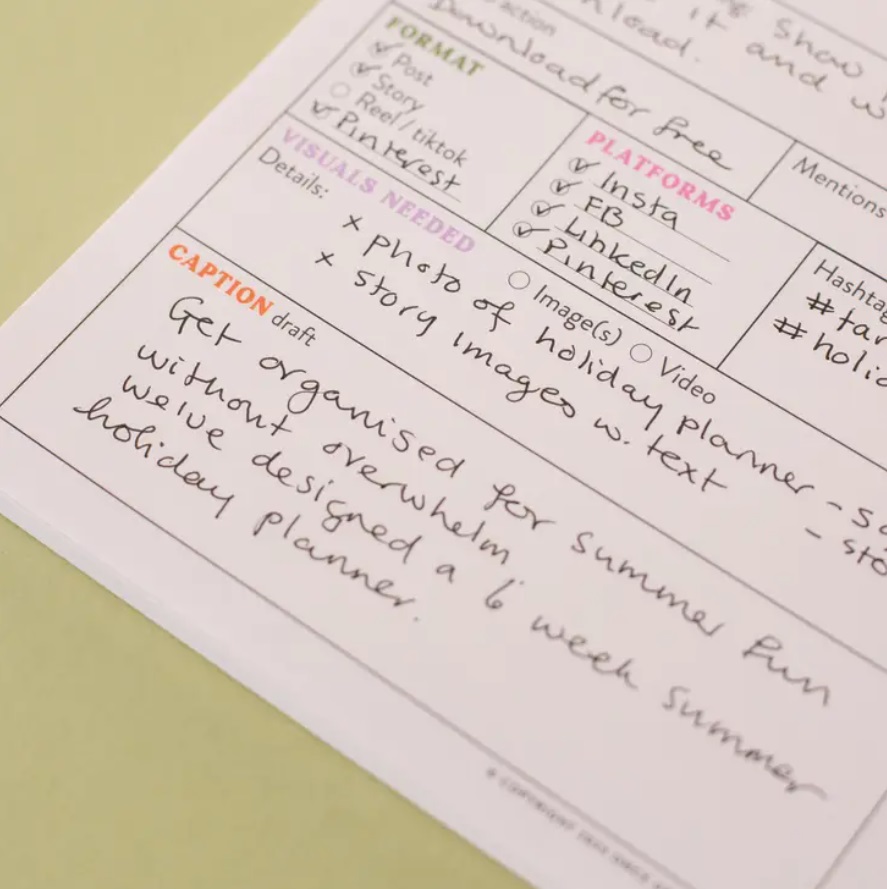 show
it and
nload.
action
Download for free
FORMAT
Post
Story
Reel / tiktok
Pinterest
PLATFORMS
Insta
FB
LinkedIn
Pinterest
Mentions
Hashtag
# tar
# holid
VISUALS NEEDED
Details:
Image(s) Video
x photo of holiday planner - s
x story images w. text - sto
CAPTION draft
Get organised for summer fun
without overwhelm.
we've designed a 6 week summer
holiday planner.
© COPYRIGHT